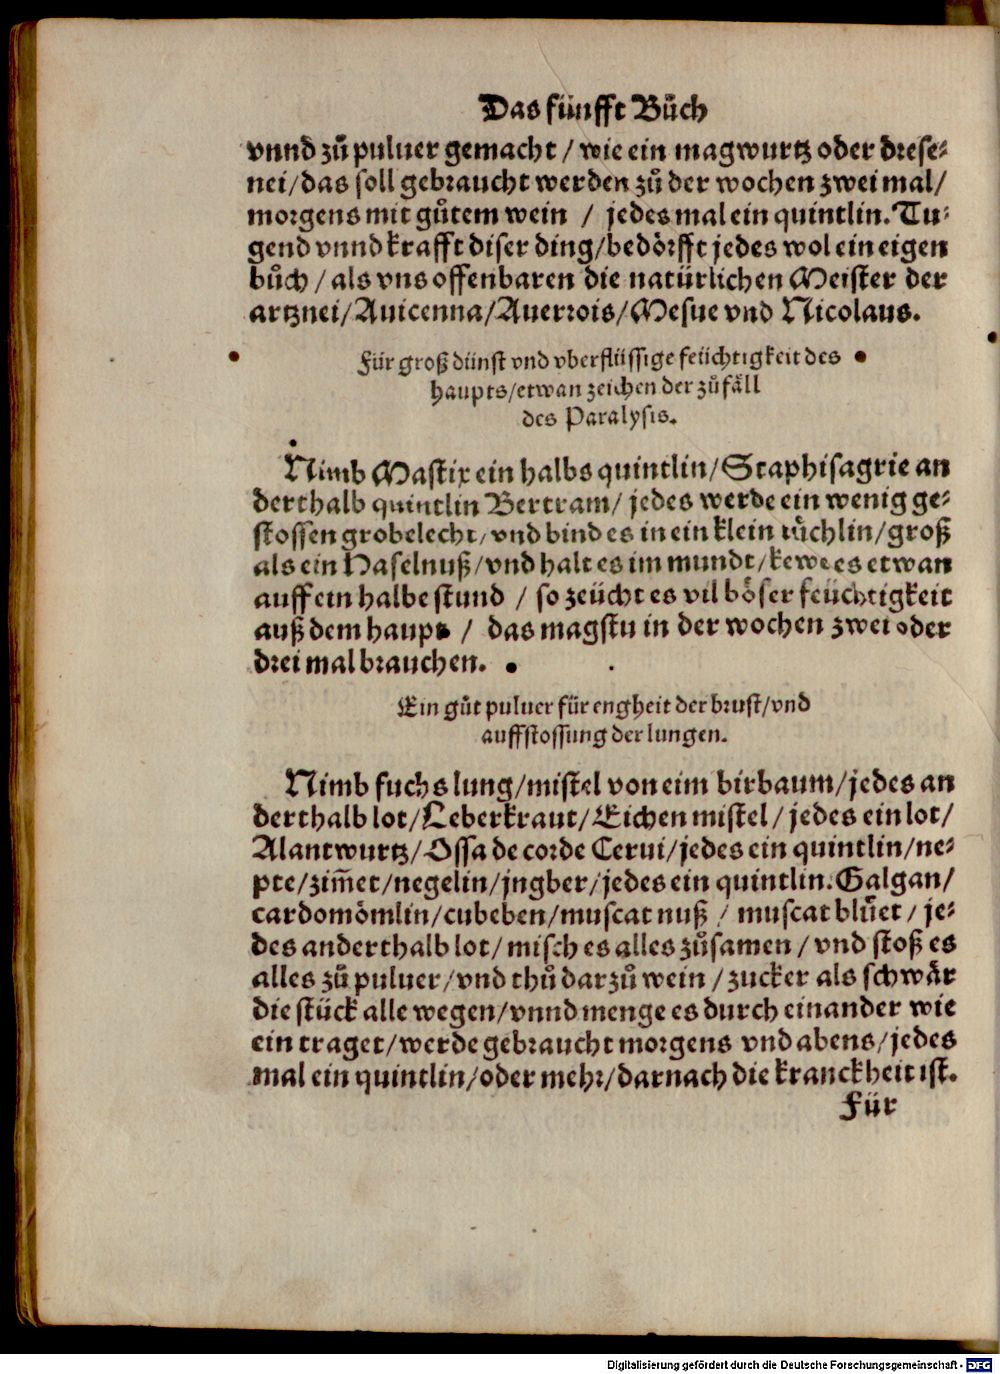 Das fünfft Bůch
vnnd zů puluer gemacht / wie ein magwurtz oder drese-
nei/das soll gebraucht werden zů der wochen zwei mal/
morgens mit gůtem wein / jedes mal ein quintlin. Tu-
gend vnnd krafft diser ding/bedörfft jedes wol ein eigen
bůch / als vns offenbaren die natürlichen Meister der
artznei/Auicenna/Auerrois/Mesue vnd Nicolaus.
Für groß dünst vnd vberflüssige feüchtigkeit des
haupts/etwan zeichen der zůfäll
des Paralysis.
Nimb Mastix ein halbs quintlin/Staphisagrie an
derthalb quintlin Bertram/ jedes werde ein wenig ge-
stossen grobelecht/vnd bind es in ein klein tüchlin/groß
als ein Haselnuß/vnd halt es im mundt/kewe es etwan
auff ein halbe stund / so zeücht es vil böser feüchtigkeit
auß dem haupt / das magstu in der wochen zwei oder
drei mal brauchen.
Ein gůt puluer für engheit der brust/vnd
auffstossung der lungen.
Nimb fuchs lung/mistel von eim birbaum/jedes an
derthalb lot/Leberkraut/Eichen mistel/jedes ein lot/
Alantwurtz/Ossa de corde Cerui/jedes ein quintlin/ne-
pte/zim̄et/negelin/jngber/jedes ein quintlin. Galgan/
cardomömlin/cubeben/muscat nuß / muscat blůet / je-
des anderthalb lot/misch es alles zůsamen / vnd stoß es
alles zů puluer/vnd thů darzů wein / zucker als schwär
die stück alle wegen/vnnd menge es durch einander wie
ein traget/werde gebraucht morgens vnd abens/jedes
mal ein quintlin/oder mehr/darnach die kranckheit ist.
Für
Digitalisierung gefördert durch die Deutsche Forschungsgemeinschaft - DFG